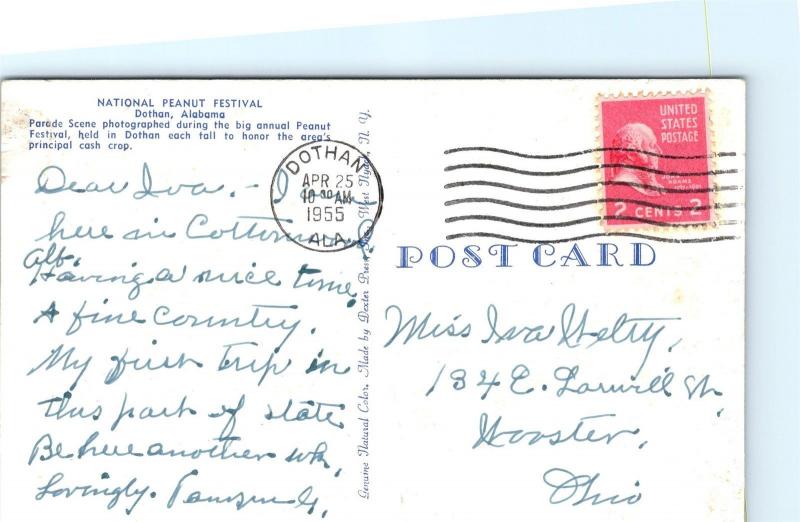 NATIONAL PEANUT FESTIVAL
Dothan, Alabama
Parade Scene photographed during the big annual Peanut
Festival, held in Dothan each fall to honor the area's
principal cash crop.
Dear Iva, - I
here in
Alb.
Having a nice time.
A fine country.
My first trip in
this part of state
Be here another wk.
Lovingly.
DOTHAN
APR 25
10 30 AM
1955
ALA.
Genuine Natural Color. Made by Dexter Press, West Nyack, N. Y.
UNITED
STATES
POSTAGE
JOHN
ADAMS
2 CENTS 2
POST CARD
Miss Iva
134 E. Larwill St.
Wooster,
Ohio